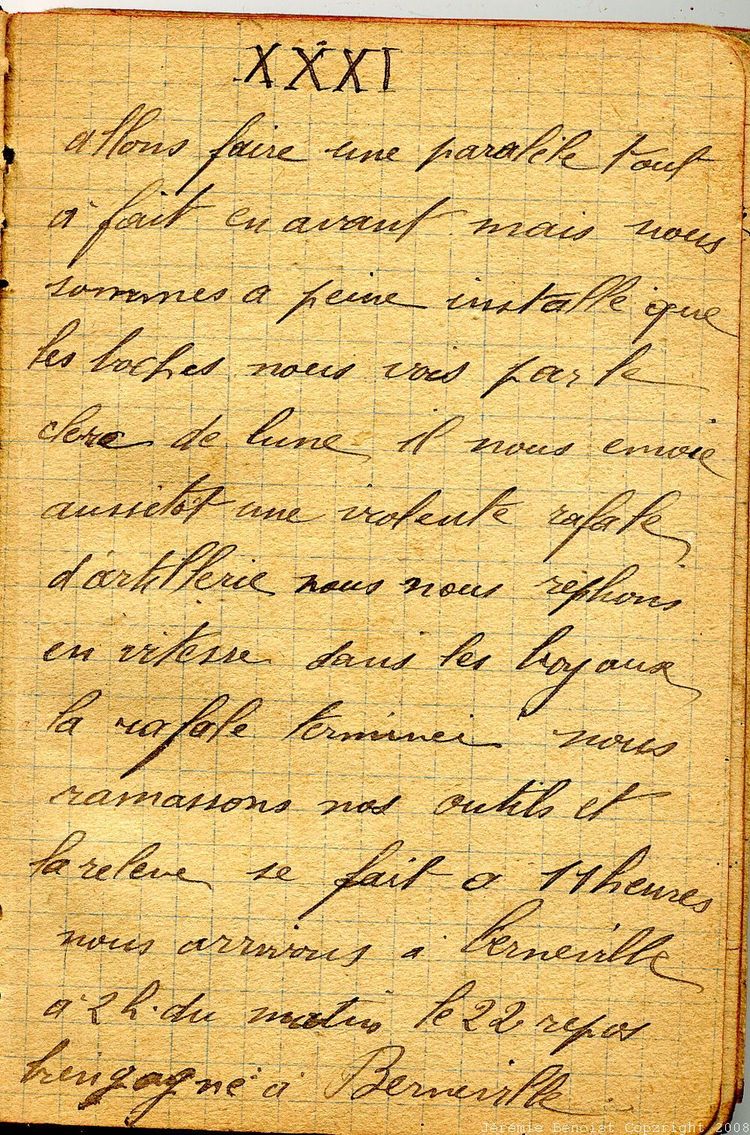 XXXI
allons faire une paralèle tout
à fait en avant mais nous
sommes a peine installé que
les boches nous vois par le
clere de lune il nous envoie
aussietot une violente rafale
d'artillerie nous nous replions
en vitesse dans les boyaux
la rafale terminei nous
ramassons nos outils et
la releve se fait a 11 heures
nous arrivons à Berneville
à 2 h. du matin le 22 repos
bien gagné à Berneville
Jérémie Benoist Copyright 2008